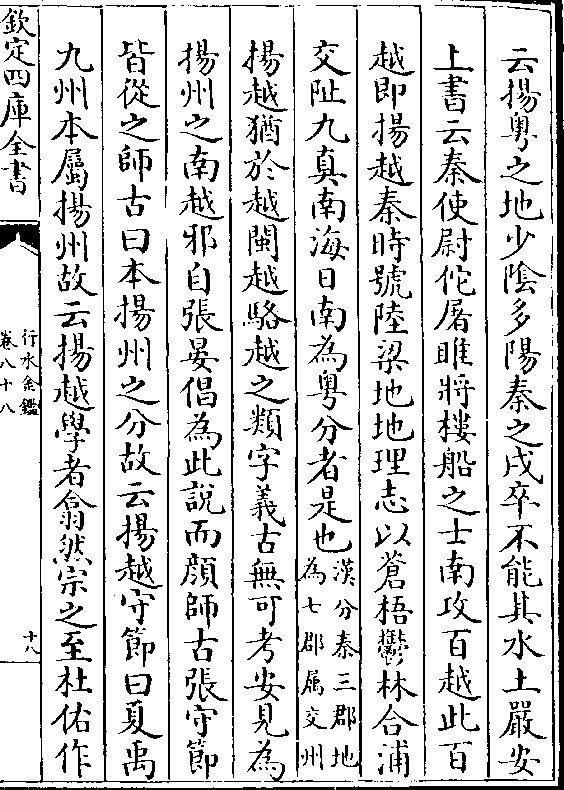 云揚粤之地少陰多陽秦之戍卒不能其水土嚴安
上書云秦使尉佗屠睢將樓船之士南攻百越此百
越即揚越秦時號陸梁地地理志以蒼梧鬱林合浦
交阯九真南海日南為粤分者是也漢分秦三郡地為七郡屬交州
揚越猶於越閩越駱越之類字義古無可考安見為
揚州之南越邪自張晏倡為此說而顔師古張守節
皆從之師古曰本揚州之分故云揚越守節曰夏禹
九州本屬揚州故云揚越學者翕然宗之至杜佑作
欽定四庫全書
行水金鑑
卷八十八
十八